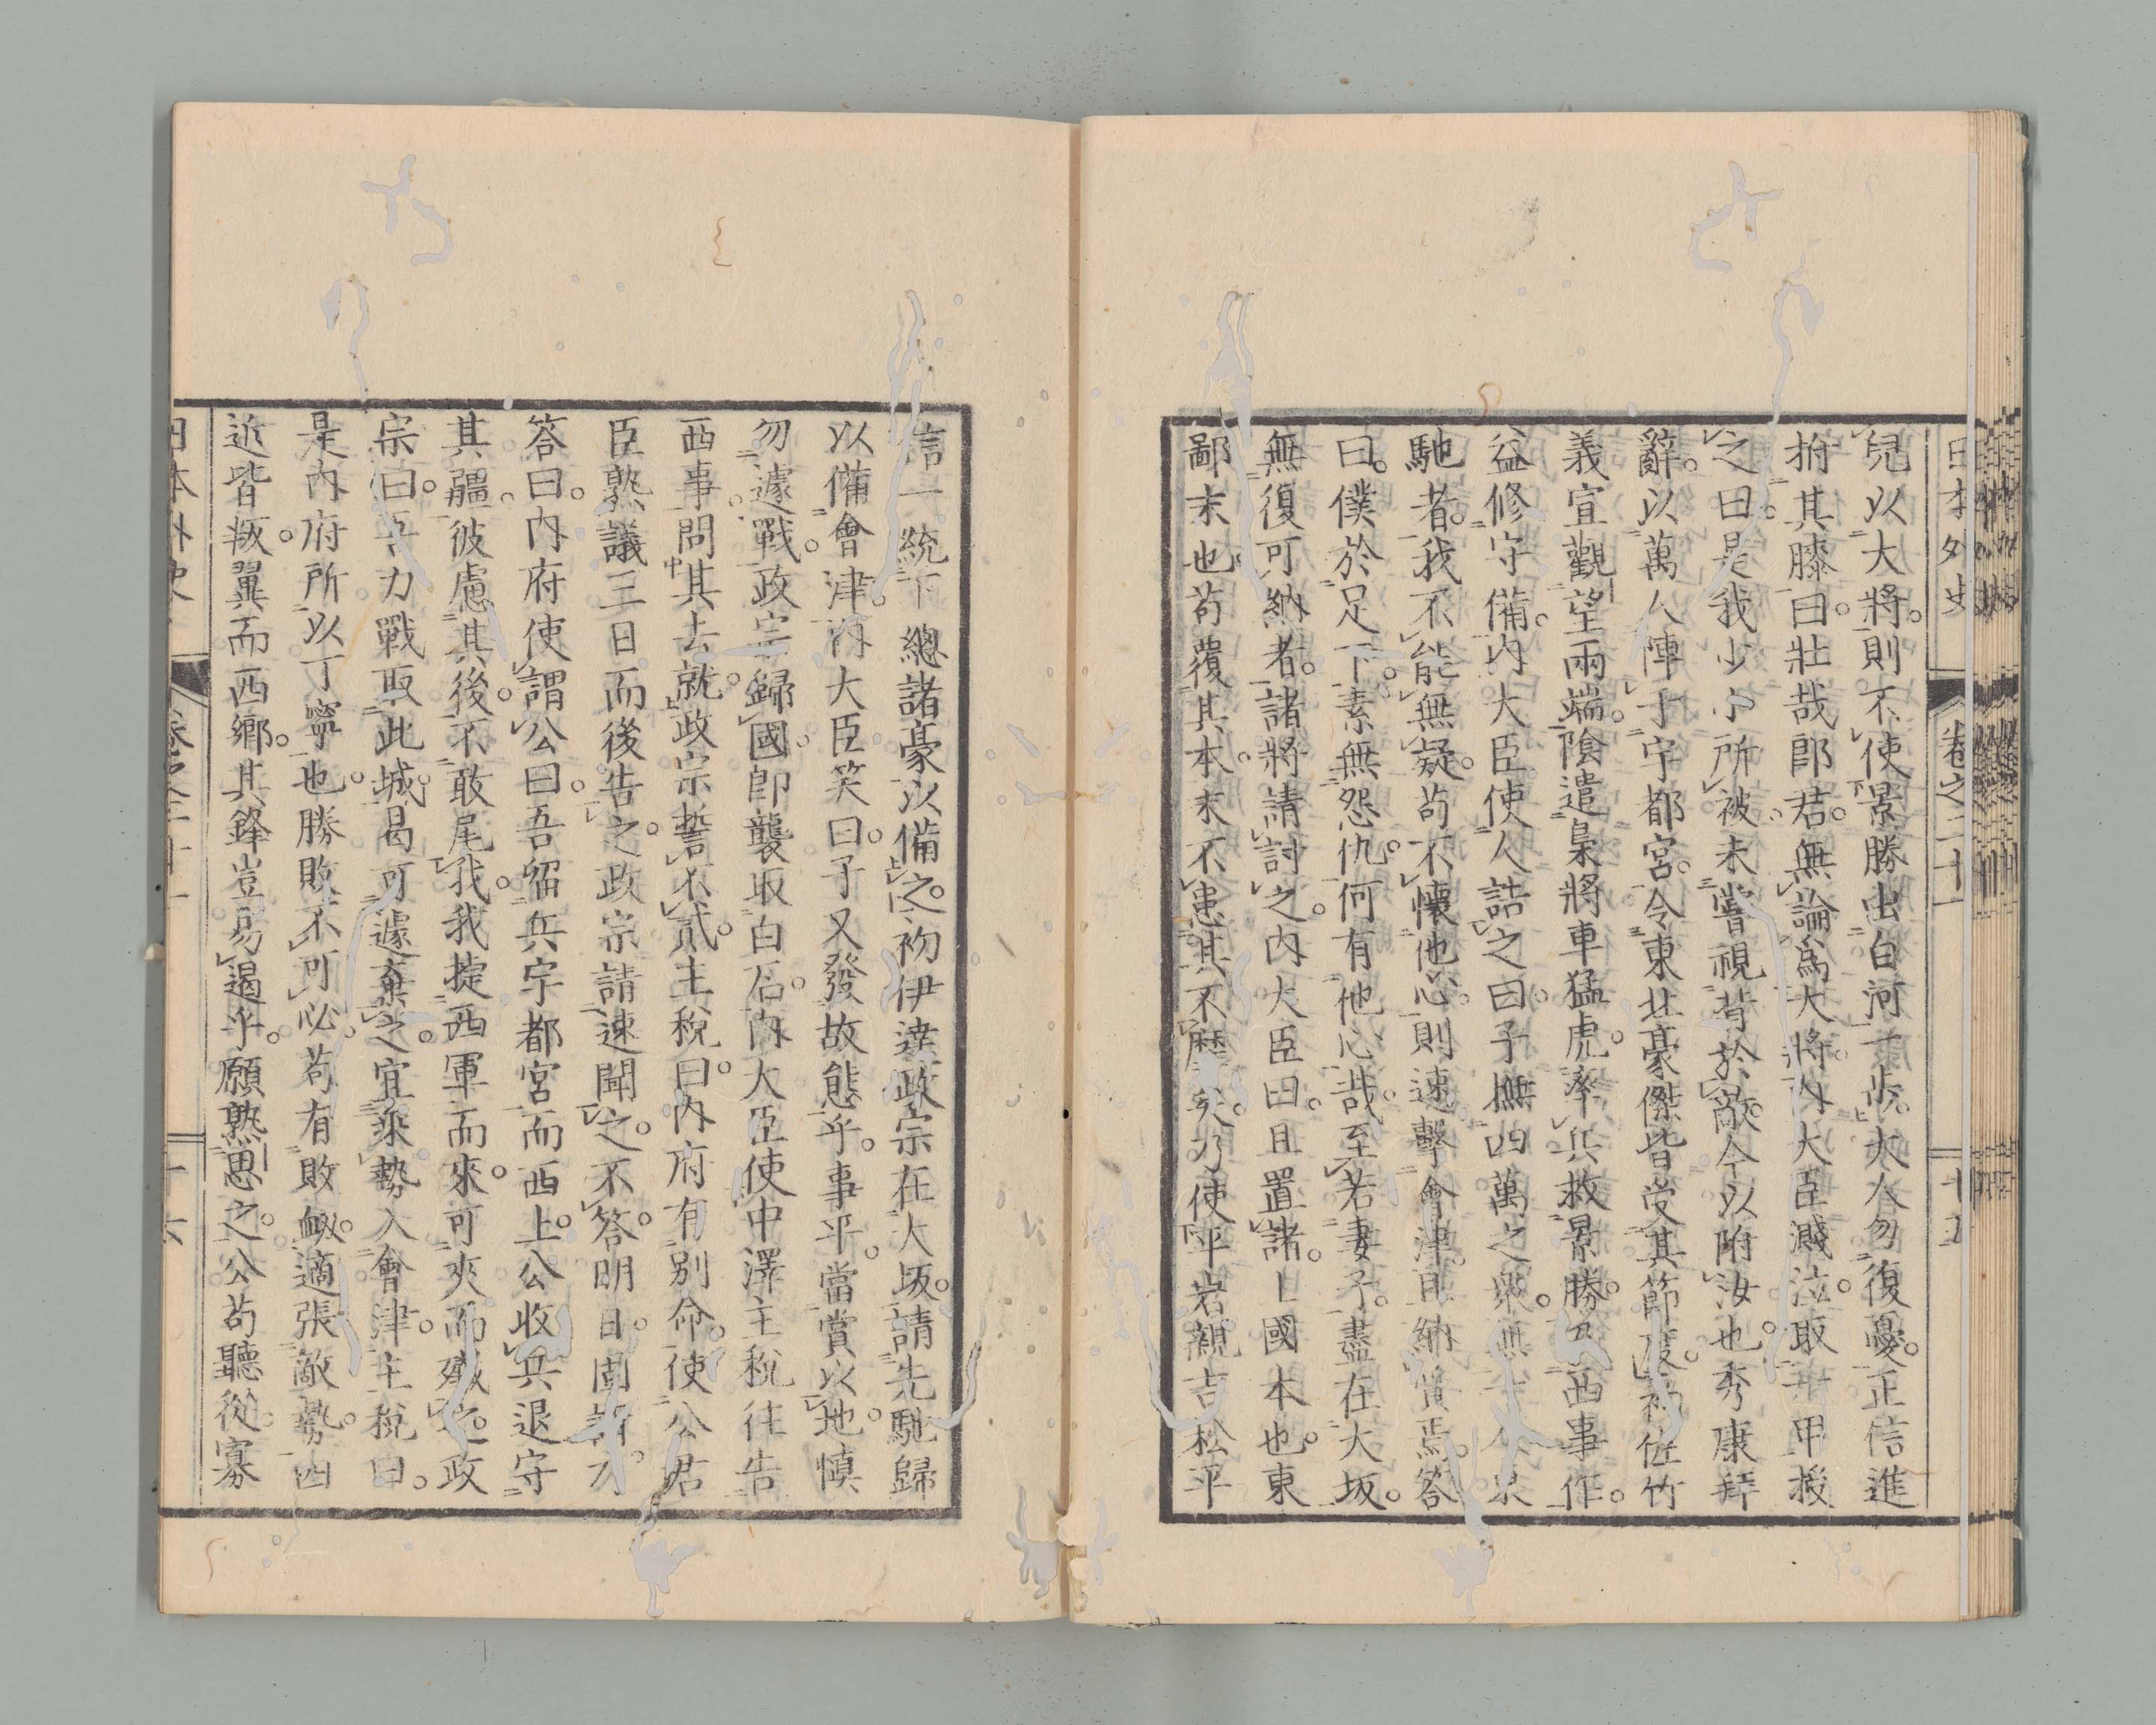 日本外史 卷之二十一 十五
兒以大將。則不使景勝出白河一步。大人勿復憂。正信進
拊其膝曰。壯哉郎君。無論爲大將。內大臣濺泣。取一甲授
之曰。是我少小所被。未嘗視背於敵。今以附汝也。秀康拜
辭。以萬人陣于宇都宮。令東北豪傑皆受其節度。初佐竹
義宣觀望兩端。陰遣梟將車猛虎。率兵救景勝。及西事作。
益修守備。內大臣使人詰之曰。子撫四萬之衆。無
馳者。我不能無疑。苟不懷他心。則速擊會津。且納質焉。答
曰。僕於足下。素無怨仇。何有他心哉。至若妻子。盡在大坂。
無復可納者。諸將請討之。內大臣曰。且置諸。上國本也。東
鄙末也。苟覆其本。末不患其不歷矣。乃使平岩親吉松平
信一統下總諸豪以備之。初伊達政宗在大坂。請先馳歸
以備會津。內大臣笑曰。子又發故態乎。事平。當賞以地。愼
勿遽戰。政宗歸國。卽襲取白石。內大臣使中澤主稅往告
西事。問其去就。政宗誓不貳。主稅曰。內府有別命。使公君
臣熟議三日而後告之。政宗請速聞之。不答。明日。固請。乃
答曰。內府使謂公曰。吾留兵宇都宮而西上。公收兵退守
其疆。彼慮其後。不敢尾我。我捷西軍而來。可夾而殲之。政
宗曰。吾力戰取此城。曷可遽棄之。宜乘勢入會津。主稅曰。
是內府所以丁寧也。勝敗不可必。苟有敗衂。適張敵勢。四
近皆叛。翼而西鄉。其鋒豈易遏乎。願熟思之。公苟聽從。寡
日本外史 卷之二十一 十六